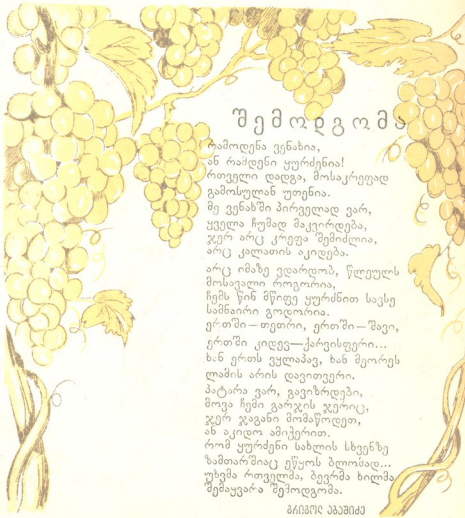 შემოდგომა
რამოდენა ვენახია,
ან რამდენი ყურძენია!
რთველი დადგა, მოსაკრეფად
გამოსულან უთენია.
მე ვენახში პირველად ვარ,
ყველა ჩუმად მაკვირდება,
ჯერ არც კრეფა შემიძლია,
არც კალათის აკიდება.
არც იმაზე ვდარდობ, წლეულს
მოსავალი როგორია,
ჩემს წინ მწიფე ყურძნით სავსე
სამნაირი გოდორია.
ერთში — თეთრი, ერთში — შავი,
ერთში კიდევ — ქარვისფერი...
ხან ერთს ვულაპავ, ხან მეორეს
ლამის არის დავითვერი.
პატარა ვარ, გავიზრდები,
მოვა ჩემი გარჯის ჯერიც,
ჯერ ჯაგანი მომაწოდეთ,
ან აკიდო ამიჭერით.
რომ ყურძენი სახლის სხვენზე
ზამთარშიაც ეწყოს ბლომად...
უხვმა რთველმა, ბევრმა ხილმა
შემაყვარა შემოდგომა.
გრიგოლ აბაშიძე